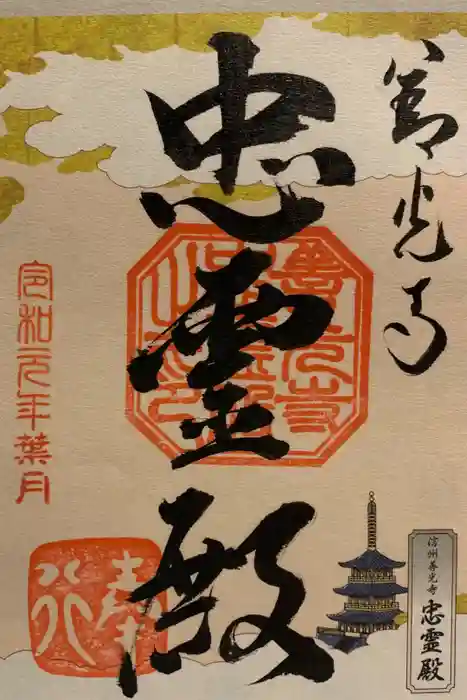 善光寺
忠霊殿
令和元年葉月
奉
行
信州善光寺
忠霊殿